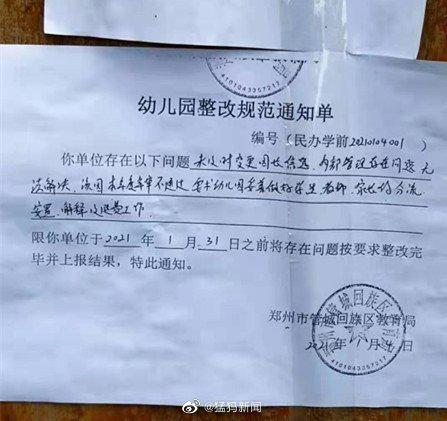 4101043357217
幼儿园整改规范通知单
编号（民办学前20210104001）
你单位存在以下问题 未及时变更园长信息，内部管理存在问题无
法解决，该园本年度年审不通过，要求幼儿园妥善做好学生、教师、家长的分流
安置、解释及退费工作。
限你单位于2021年1月31日之前将存在问题按要求整改完
毕并上报结果，特此通知。
郑州市管城回族区教育局
2021年1月4日
4101043357217
@猛犸新闻